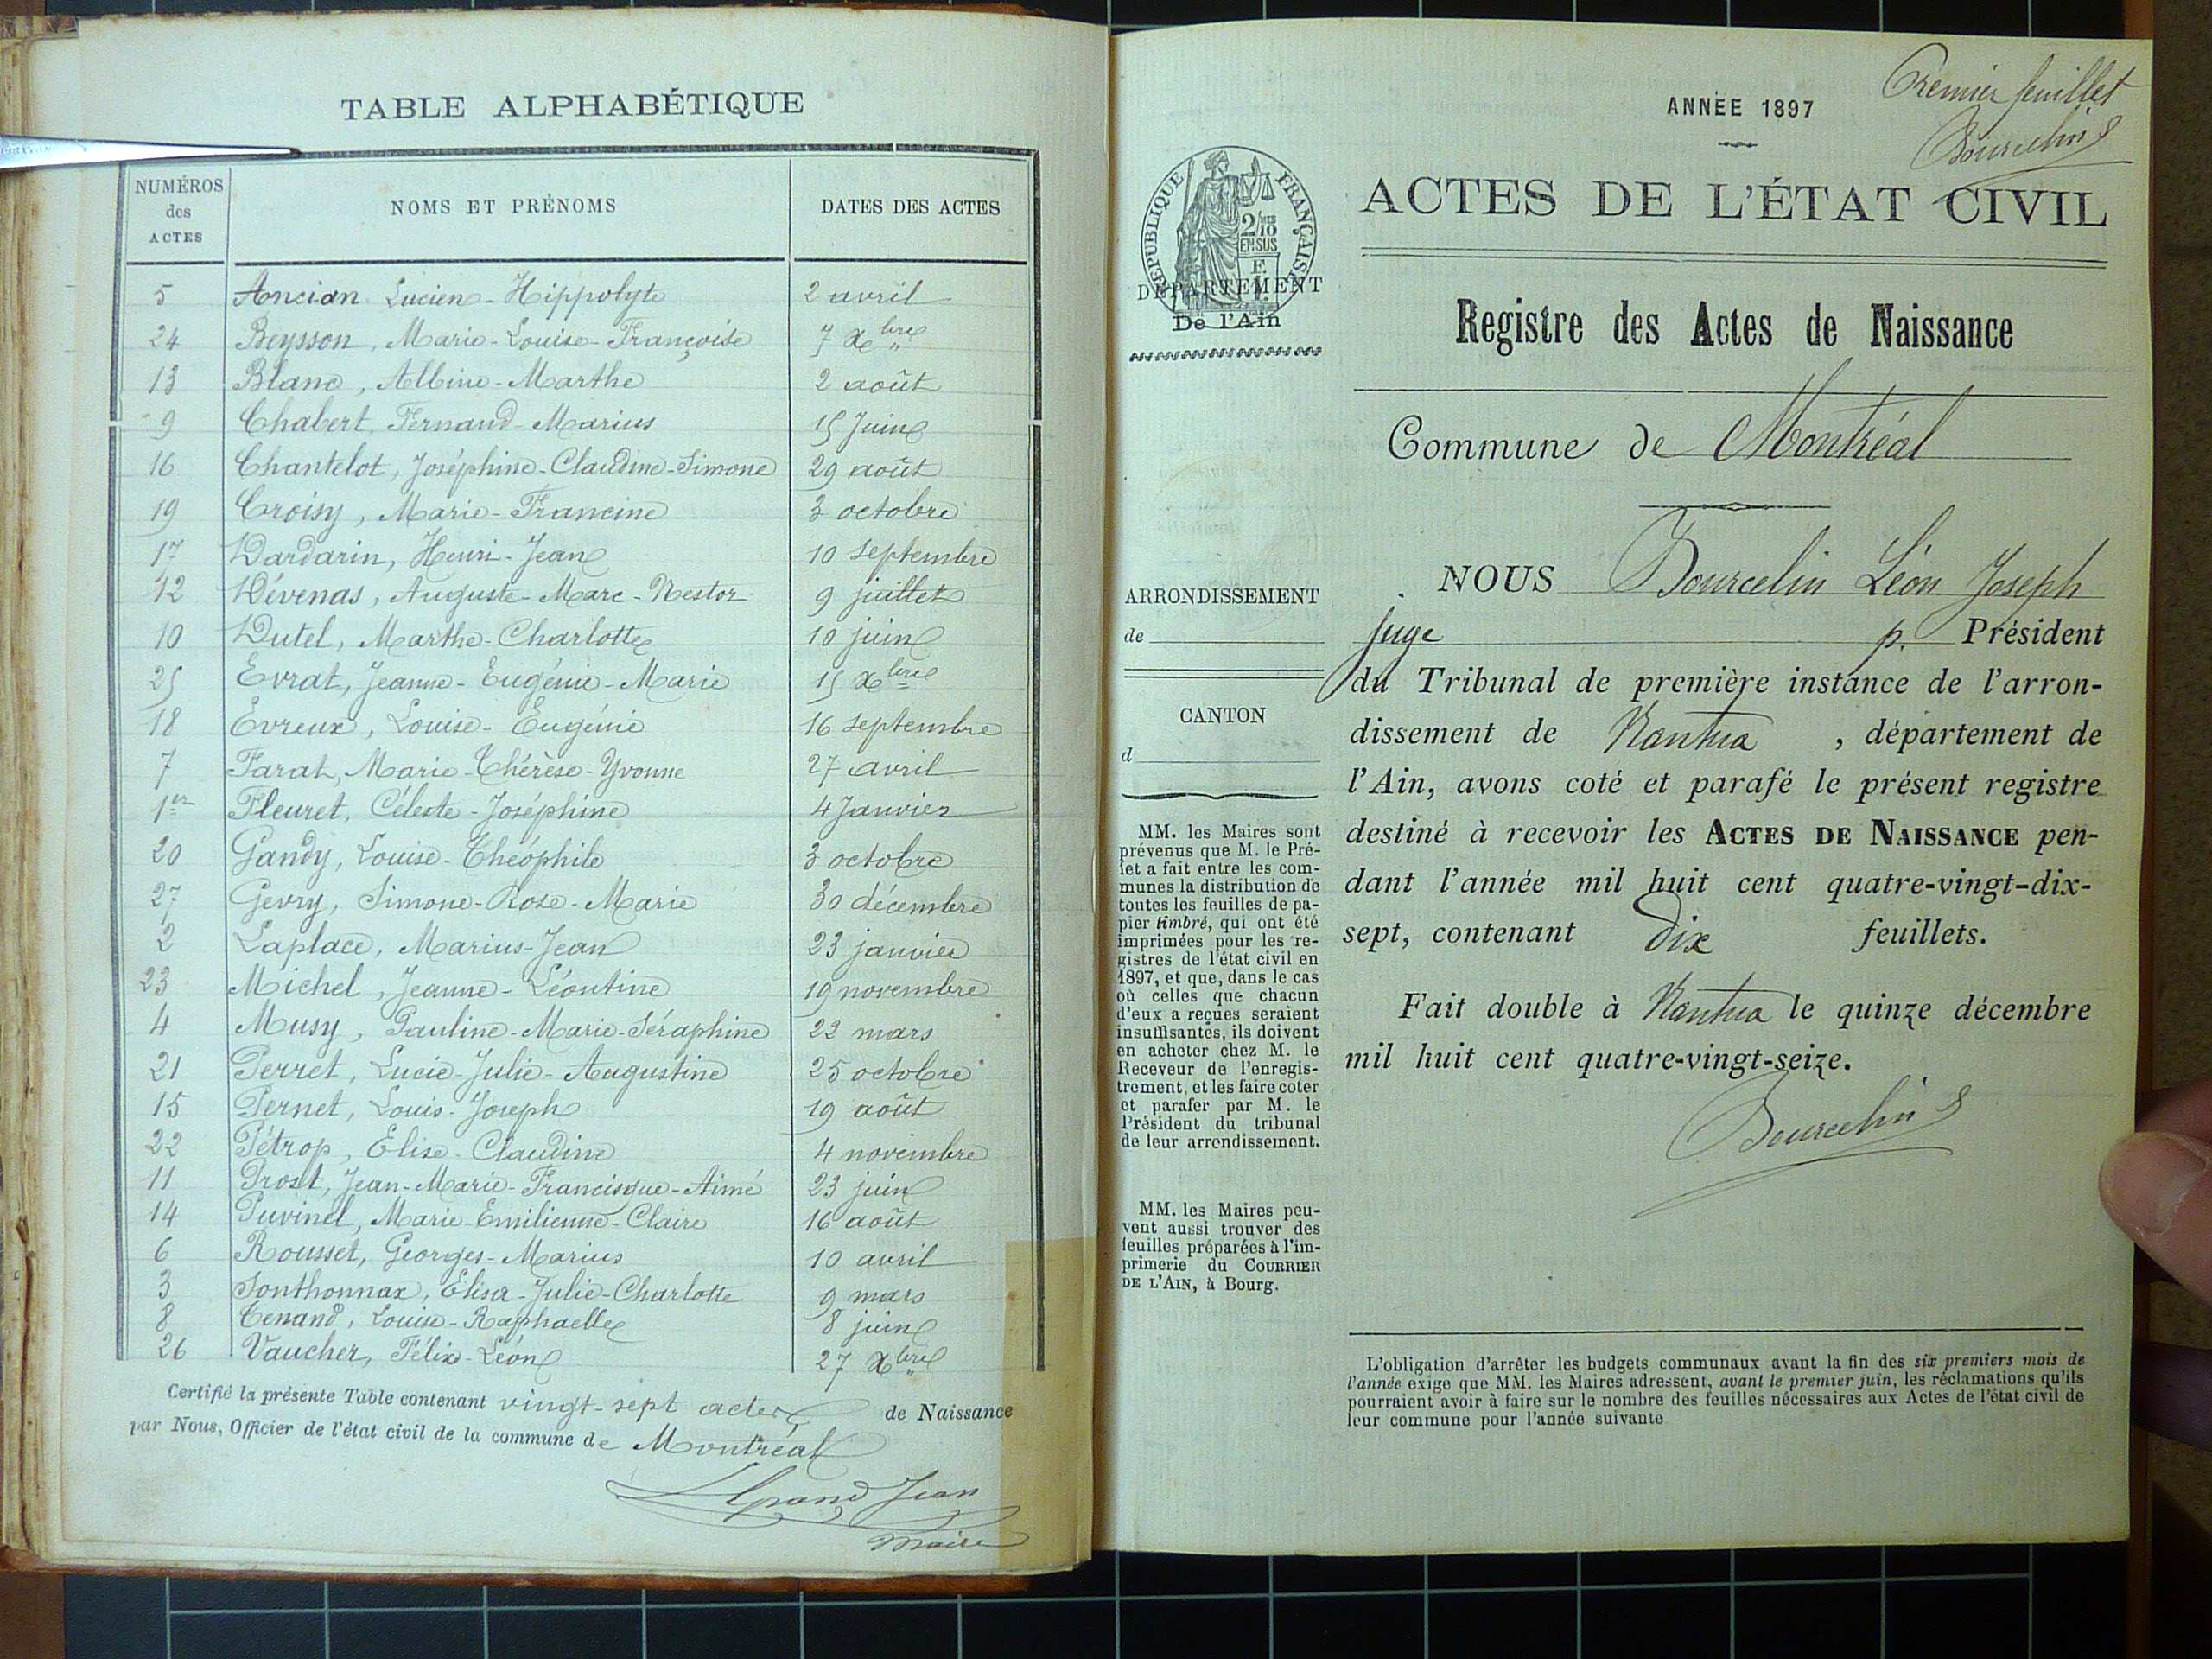 TABLE ALPHABÉTIQUE
NUMÉROS des ACTES
NOMS ET PRÉNOMS
DATES DES ACTES
5 Ancian Lucien-Hippolyte 2 avril
24 Beysson, Marie-Louise-Françoise 7 Xbre
13 Blanc, Albine-Marthe 2 août
9 Chabert, Fernand-Marius 15 Juin
16 Chantelot, Joséphine-Claudine-Simone 29 août
19 Croisy, Marie-Francine 3 octobre
17 Dardarin, Henri-Jean 10 septembre
12 Dévenas, Auguste-Marc-Nestor 9 juillet
10 Dutel, Marthe-Charlotte 10 juin
25 Evrat, Jeanne-Eugénie-Marie 15 Xbre
18 Evreux, Louise-Eugénie 16 septembre
7 Farat, Marie-Thérèse-Yvonne 27 avril
1er Fleuret, Céleste-Joséphine 4 Janvier
20 Gandy, Louise-Théophile 3 octobre
27 Gevry, Simone-Rose-Marie 30 décembre
2 Laplace, Marius-Jean 23 janvier
23 Michel, Jeanne-Léontine 19 novembre
4 Musy, Pauline-Marie-Séraphine 22 mars
21 Perret, Lucie-Julie-Augustine 25 octobre
15 Pernet, Louis-Joseph 19 août
22 Pétrop, Elise-Claudine 4 novembre
11 Prost, Jean-Marie-Francisque-Aimé 23 juin
14 Puvinel, Marie-Emilienne-Claire 16 août
6 Rousset, Georges-Marius 10 avril
3 Sonthonnax, Elisa-Julie-Charlotte 9 mars
8 Tenand, Louise-Raphaelle 8 juin
26 Vaucher, Félix-Léon 27 Xbre
Certifié la présente Table contenant vingt-sept actes de Naissance
par Nous, Officier de l'état civil de la commune de Montréal
Grand Jean
Maire
Premier feuillet
Bourcelin
ANNÉE 1897
RÉPUBLIQUE FRANÇAISE
2/10
EN SUS
DÉPARTEMENT
De l'Ain
ACTES DE L'ÉTAT CIVIL
Registre des Actes de Naissance
Commune de Montréal
ARRONDISSEMENT
de
CANTON
d
MM. les Maires sont
prévenus que M. le Pré-
fet a fait entre les com-
munes la distribution de
toutes les feuilles de pa-
pier timbré, qui ont été
imprimées pour les re-
gistres de l'état civil en
1897, et que, dans le cas
où celles que chacun
d'eux a reçues seraient
insuffisantes, ils doivent
en acheter chez M. le
Receveur de l'enregis-
trement, et les faire coter
et parafer par M. le
Président du tribunal
de leur arrondissement.
MM. les Maires peu-
vent aussi trouver des
feuilles préparées à l'im-
primerie du COURRIER
DE L'AIN, à Bourg.
NOUS Bourcelin Léon Joseph
juge p. Président
du Tribunal de première instance de l'arron-
dissement de Nantua, département de
l'Ain, avons coté et parafé le présent registre
destiné à recevoir les ACTES DE NAISSANCE pen-
dant l'année mil huit cent quatre-vingt-dix-
sept, contenant dix feuillets.
Fait double à Nantua le quinze décembre
mil huit cent quatre-vingt-seize.
Bourcelin
L'obligation d'arrêter les budgets communaux avant la fin des six premiers mois de
l'année exige que MM. les Maires adressent, avant le premier juin, les réclamations qu'ils
pourraient avoir à faire sur le nombre des feuilles nécessaires aux Actes de l'état civil de
leur commune pour l'année suivante